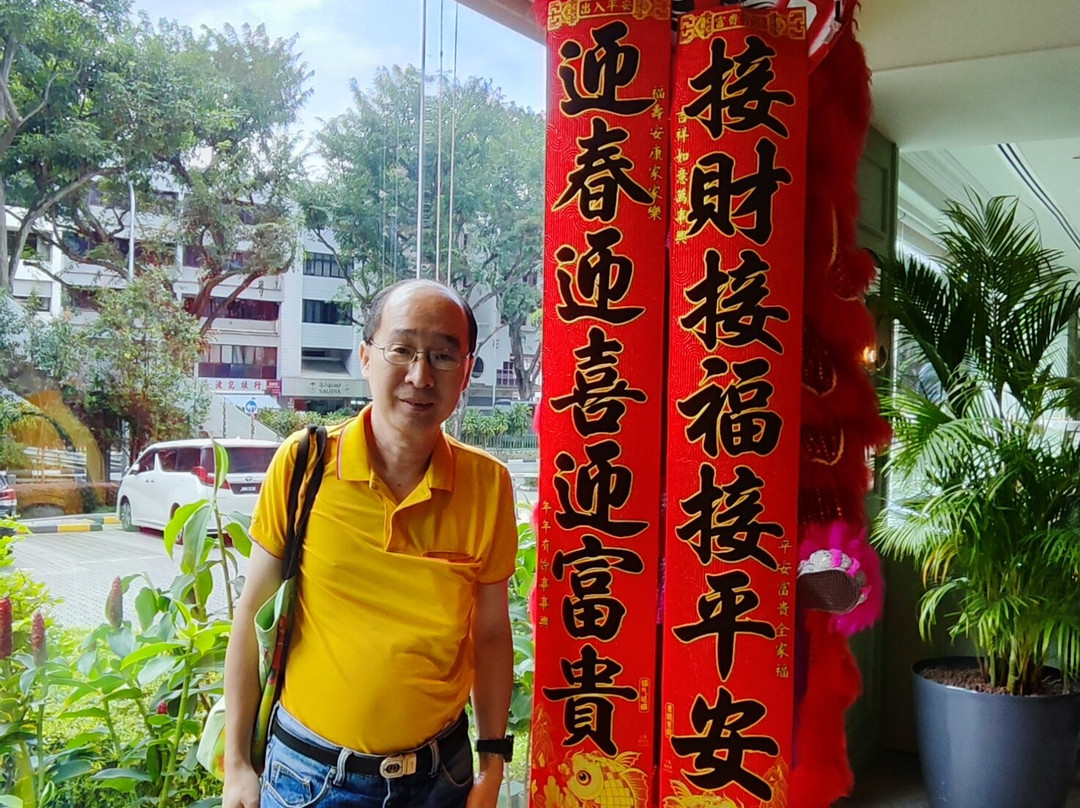 出入平安
富贵
迎春迎喜迎富貴
接財接福接平安
福壽安康家家樂
吉祥如意萬事興
年年有餘事事興
平安富貴全家福
SALINA